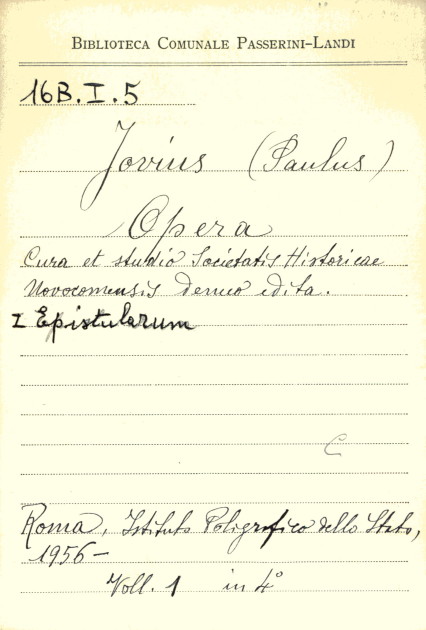 BIBLIOTECA COMUNALE PASSERINI-LANDI
16B.I.5
Jovius (Paulus)
Opera
Cura et studio Societatis Historicae
Novocomensis denuo edita.
I Epistularum
C
Roma, Istituto Poligrafico dello Stato,
1956-
Voll. 1 in 4°